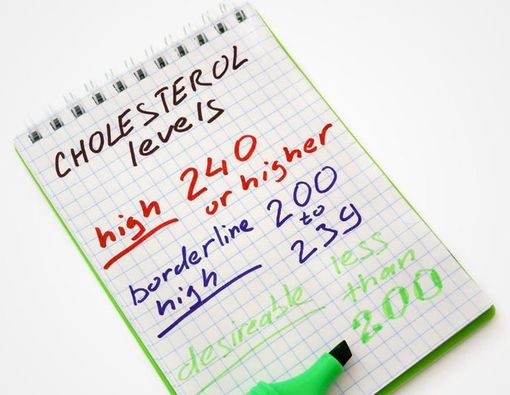 CHOLESTEROL
levels
high 240
or higher
borderline 200
high to
239
desireable less
than
200